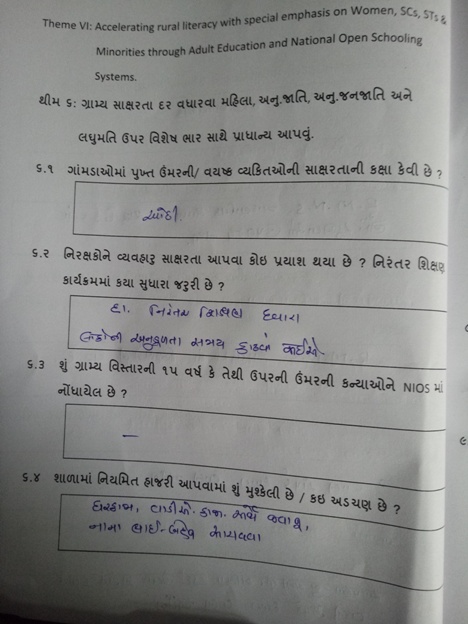 Theme VI: Accelerating rural literacy with special emphasis on Women, SCs, STs &
Minorities through Adult Education and National Open Schooling
Systems.
થીમ ૬: ગ્રામ્ય સાક્ષરતા દર વધારવા મહિલા, અનુ.જાતિ, અનુ.જનજાતિ અને
લઘુમતિ ઉપર વિશેષ ભાર સાથે પ્રાધાન્ય આપવું.
૬.૧ ગાંમડાઓમાં પુખ્ત ઉંમરની/ વયષ્ક વ્યકિતઓની સાક્ષરતાની કક્ષા કેવી છે ?
ઓછી
૬.૨ નિરક્ષકોને વ્યવહારુ સાક્ષરતા આપવા કોઇ પ્રયાશ થયા છે ? નિરંતર શિક્ષણ
કાર્યક્રમમાં કયા સુધારા જરૂરી છે ?
હા. નિરંતર શિક્ષણ દ્વારા
અનુકૂળતા સમય
૬.૩ શું ગ્રામ્ય વિસ્તારની ૧૫ વર્ષ કે તેથી ઉપરની ઉંમરની કન્યાઓને NIOS માં
નોંધાયેલ છે ?
–
૬.૪ શાળામાં નિયમિત હાજરી આપવામાં શું મુશ્કેલી છે / કઇ અડચણ છે ?
ઘરકામ, વાડીએ કામ જવાનું,
નાના ભાઈ-બહેન